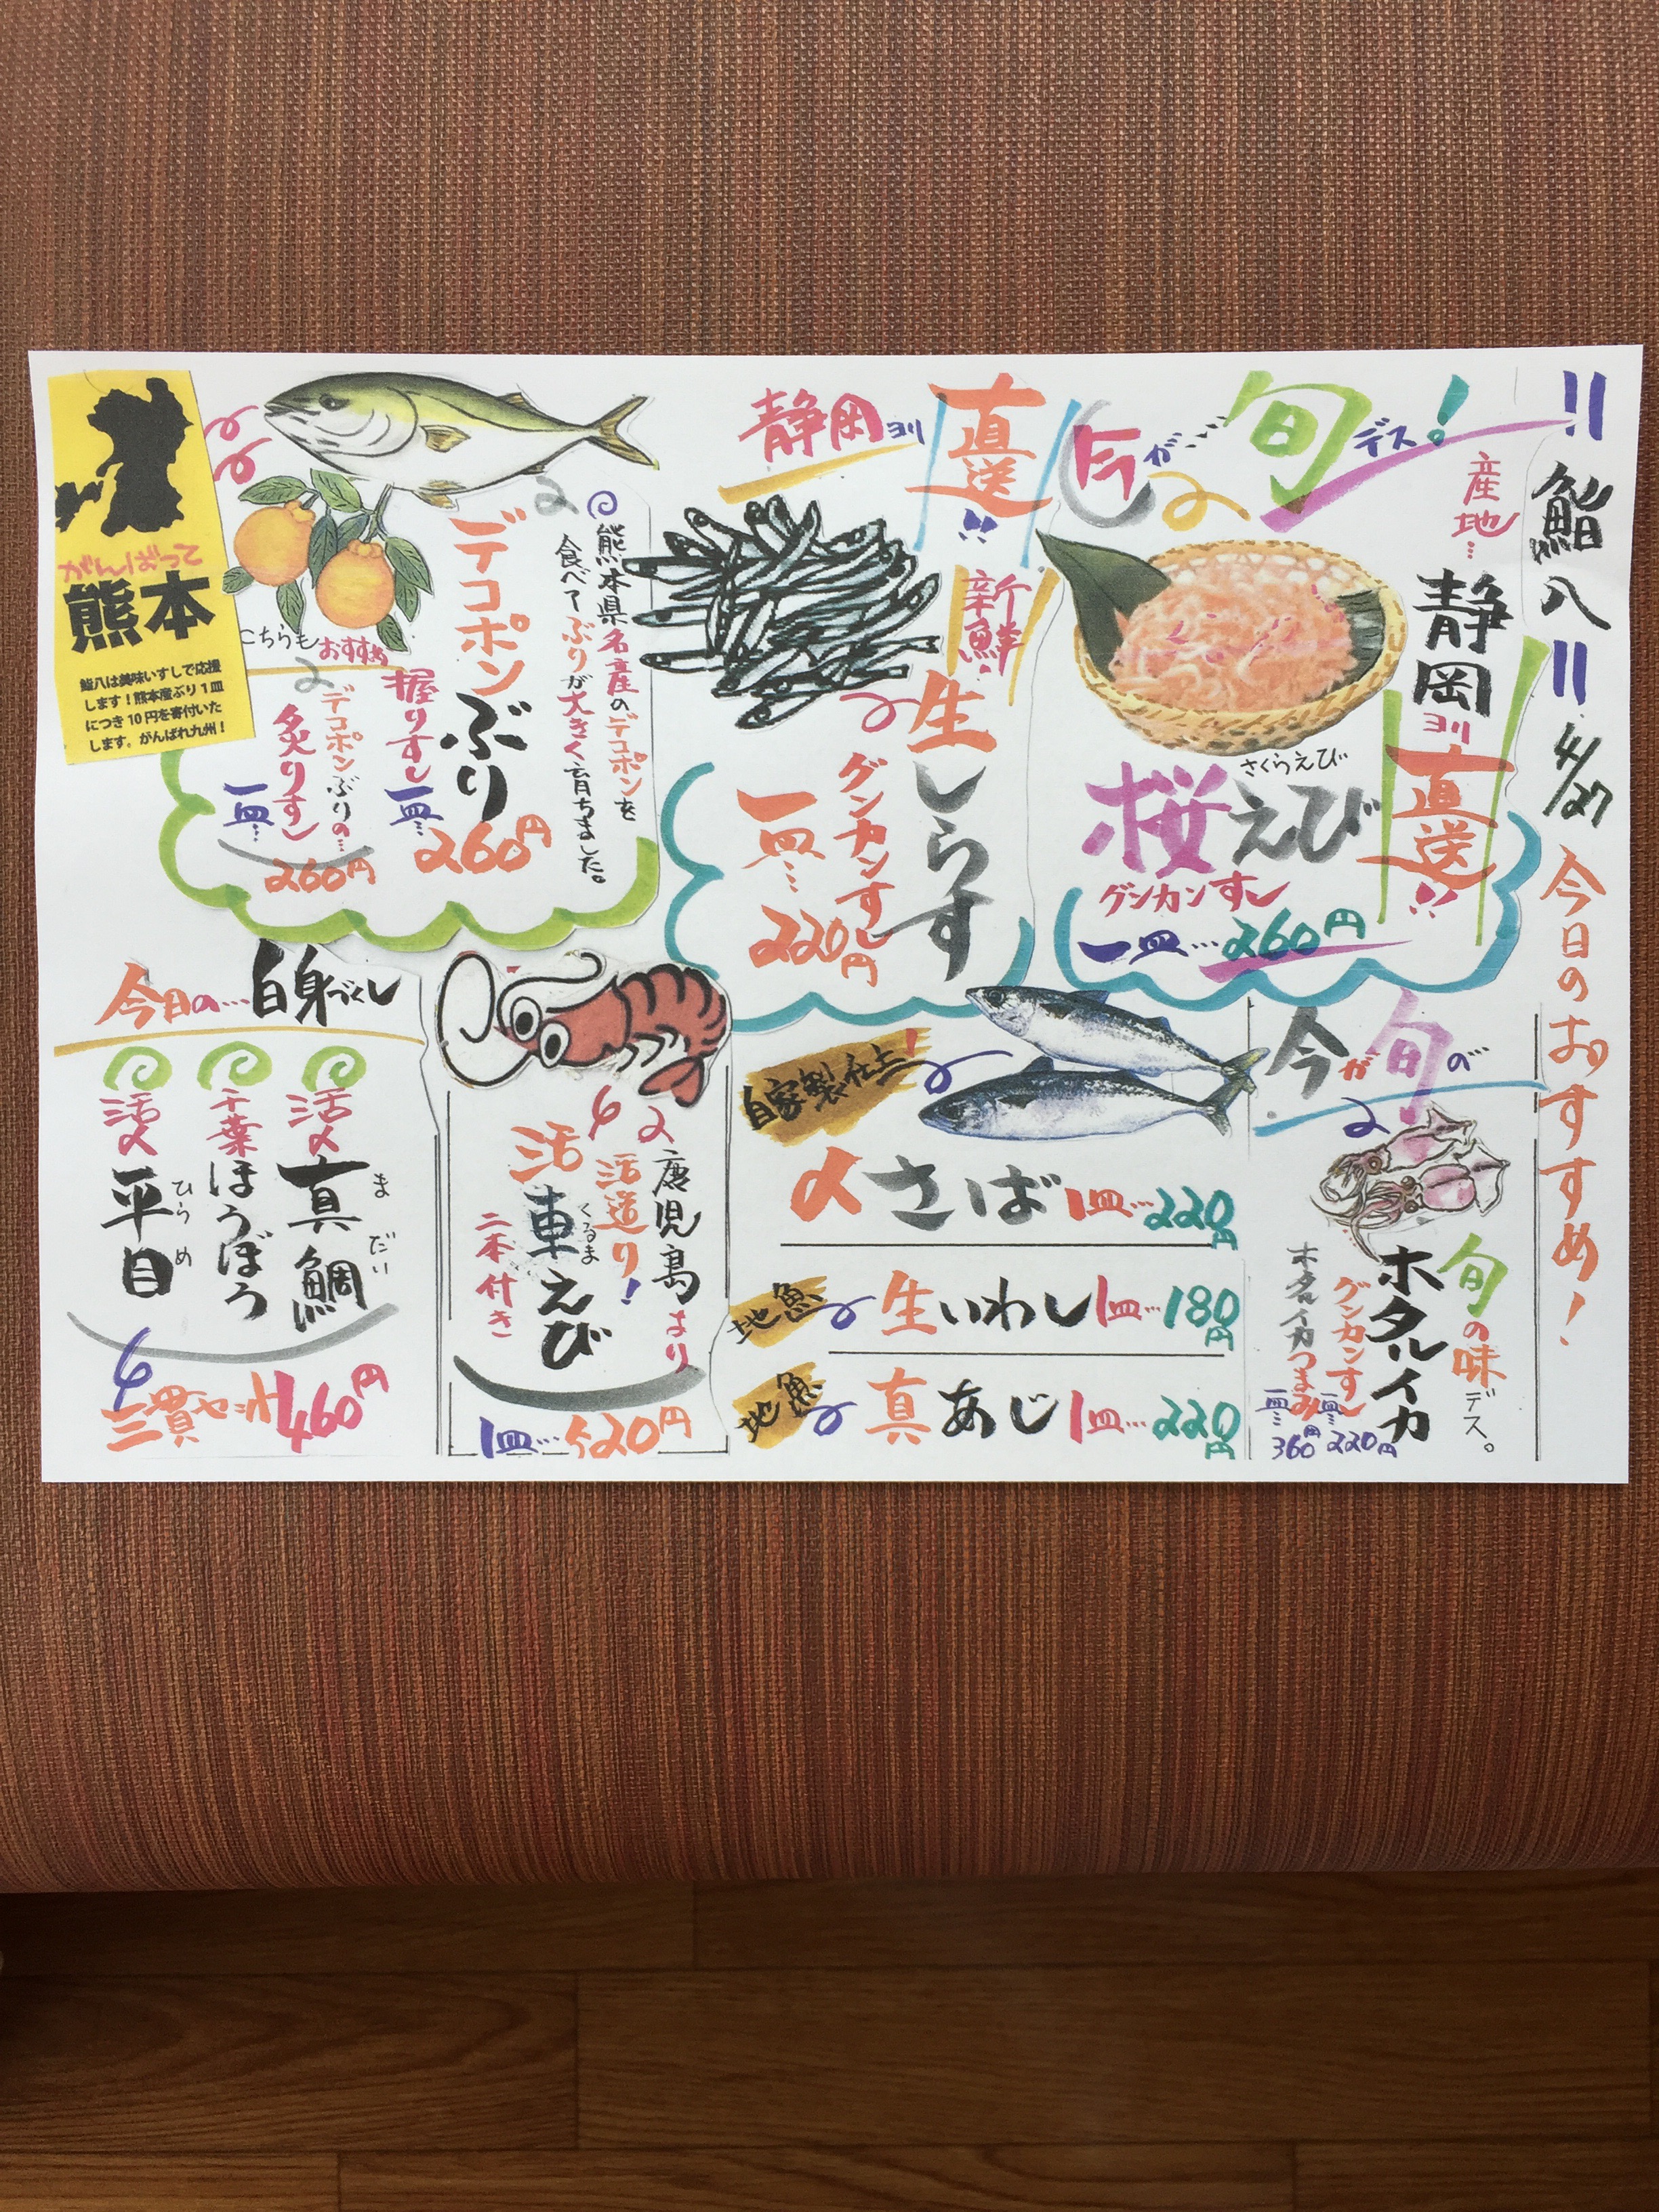 鮨八
4/27
今日のおすすめ!
今が…旬デス!
産地…静岡ヨリ直送!!
さくらえび
桜えび
グンカンすし
一皿…260円
静岡ヨリ直送!!
新鮮!
生しらす
グンカンすし
一皿…220円
熊本県名産のデコポンを
食べてぶりが大きく育ちました。
デコポンぶり
握りすし
一皿…260円
こちらもおすすめ
デコポンぶりの…
炙りすし
一皿…260円
がんばって
熊本
鮨八は美味いすしで応援
します!熊本産ぶり1皿
につき10円を寄付いた
します。がんばれ九州!
今が旬の
旬の味デス。
ホタルイカ
グンカンすし
一皿…220円
ホタルイカつまみ
一皿…360円
自家製仕立!
〆さば1皿…220円
地魚
生いわし1皿…180円
地魚
真あじ1皿…220円
鹿児島より
活造り!
活車えび
くるま
二本付き
1皿…520円
今日の…白身づくし
活〆真鯛
まだい
千葉ほうぼう
活〆平目
ひらめ
三貫セット460円